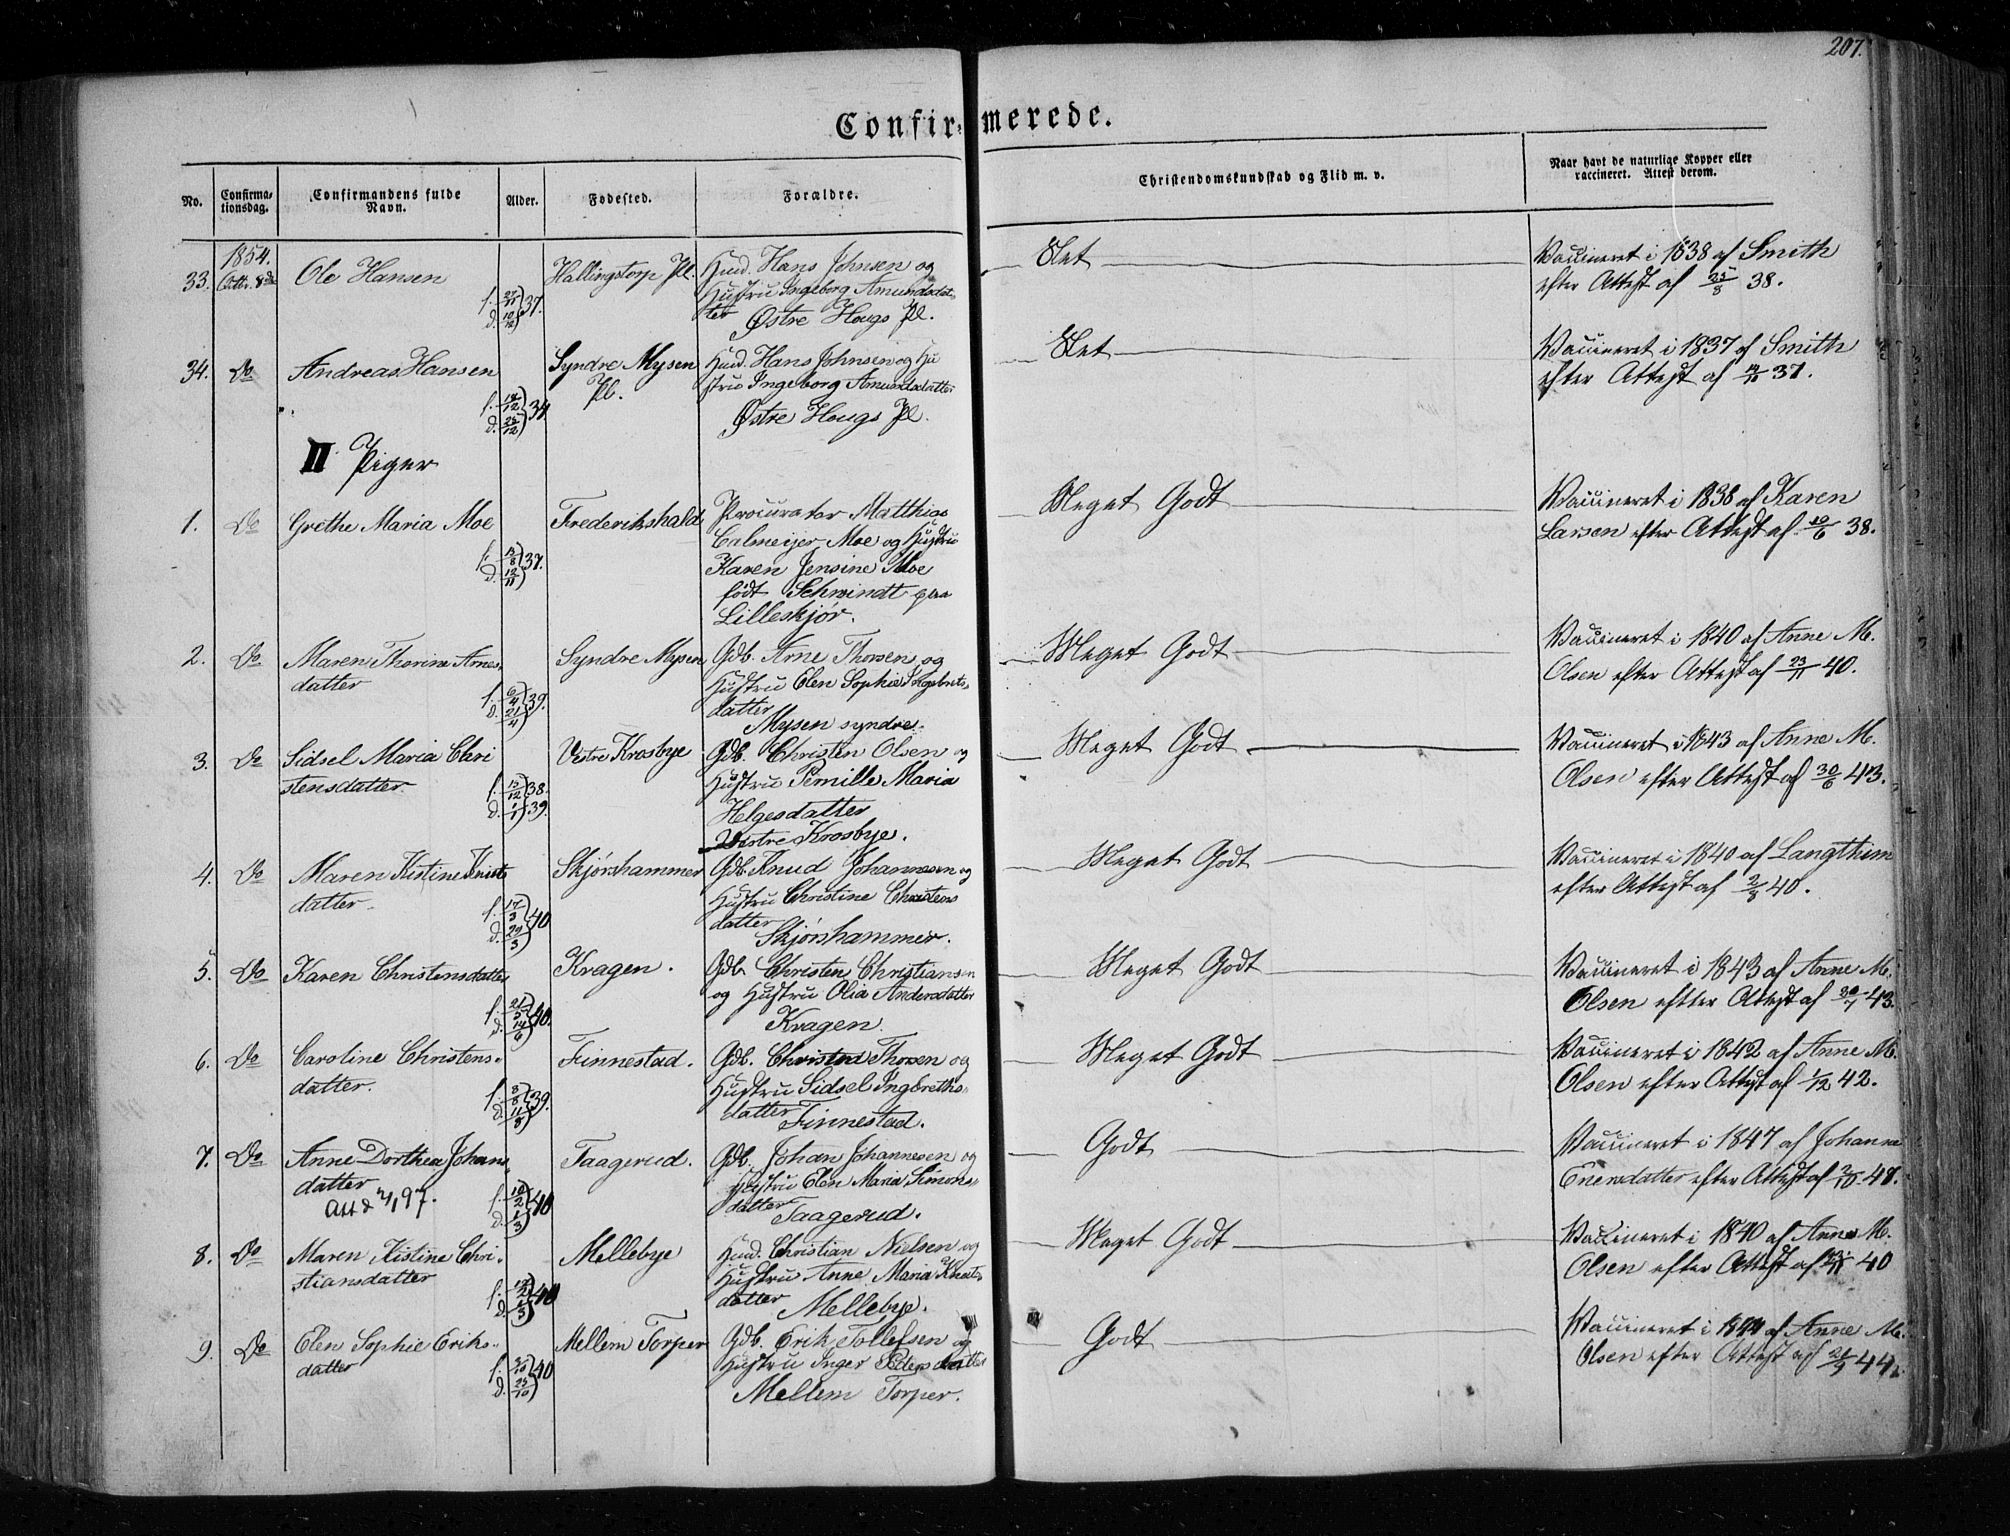 207.
Confirmerede.
No.
Confirma-
tionsdag.
Confirmandens fulde
Navn.
Alder.
Fødested.
Forældre.
Christendomskundskab og Flid m. v.
Naar havt de naturlige Kopper eller
vaccineret. Attest derom.
1854.
33. Octbr. 8de Ole Hansen
f. 27/11 d. 10/12 } 37.
Hallingstorp Pl.
Huusmd. Hans Johnsen og
Hustru Ingeborg Amundsdat-
ter
Østre Hougs Pl.
Slet
Vaccineret i 1838 af Smith
efter Attest af 25/8 38.
34. Do Andreas Hansen
34
Syndre Mysen
Pl.
Huusmd. Hans Johnsen og Hu
stru Ingeborg Amundsdatter
Østre Hougs Pl.
Slet
Vaccineret i 1837 af Smith
efter Attest af 37.
II Piger
1. Do Grethe Maria Moe
f. 13/8 d. 12/11 } 37.
Frederikshald
Procurator Matthias
Calmeijer Moe og Hustru
Karen Jensine Moe
født Schwindt paa
Lilleskjør.
Meget Godt
Vaccineret i 1838 af Karen
Larsen efter Attest af 10/6 38.
2. Do Maren Thorine Arnes-
datter
f. 6/4 d. 21/4 } 39.
Syndre Mysen
Gdb. Arne Thorsen og
Hustru Elen Sophie
datter
Mysen syndre.
Meget Godt
Vaccineret i 1840 af Anne M.
Olsen efter Attest af 23/11 40.
3. Do Sidsel Maria Chri
stensdatter
f. 15/12 38.
d. 1/1 39.
Vestre Krosbye
Gdb. Christen Olsen og
Hustru Pernille Maria
Helgesdatter
Vestre Krosbye.
Meget Godt
Vaccineret i 1843 af Anne M.
Olsen efter Attest af 30/6 43.
4. Do Maren Kistine Knuds
datter
f. 17/3 d. 29/3 } 40
Skjørshammer
Gdb. Knud Johannesen og
Hustru Christine Christens
datter
Skjørshammer.
Meget Godt
Vaccineret i 1840 af Langthim
efter Attest af 2/8 40.
5. Do Karen Christensdatter
f. 21/5 d. 14/6 } 40.
Kragen.
Gdb. Christen Christiansen
og Hustru Olia Andersdatter
Kragen.
Meget Godt
Vaccineret i 1843 af Anne M.
Olsen efter Attest af 30/7 43.
6. Do Caroline Christens-
datter.
39.
Finnestad.
Gdb. Christen Thorsen og
Hustru Sidsel Ingbreths-
datter
Finnestad.
Meget Godt
Vaccineret i 1842 af Anne M.
Olsen efter Attest af 1/12 42.
7. Do Anne Dorthea Johans
datter
Att d 97.
f. 10/2 d. 1/3 } 40
Taagerud.
Gdb. Johan Johannesen og
Hustru Elen Maria Simons-
datter
Taagerud.
Godt
Vaccineret i 1847 af Johanna
Enersdatter efter Attest af 2/10 47.
8. Do Maren Kistine Chri-
stiansdatter
f. 12/2 d. 1/3 } 40
Mellebye
Huusmd. Christian Nielsen og
Hustru Anne Maria Knuts
datter
Mellebye.
Meget Godt
Vaccineret i 1840 af Anne M.
Olsen efter Attest af 40
9. Do Elen Sophie Eriks-
datter
d. 25/10 40
Mellem Torper
Gdb. Erik Tollefsen og
Hustru Inger Pedersdatter
Mellem Torper.
Godt
Vaccineret i 1844 af Anne M.
Olsen efter Attest af 21/9 44.